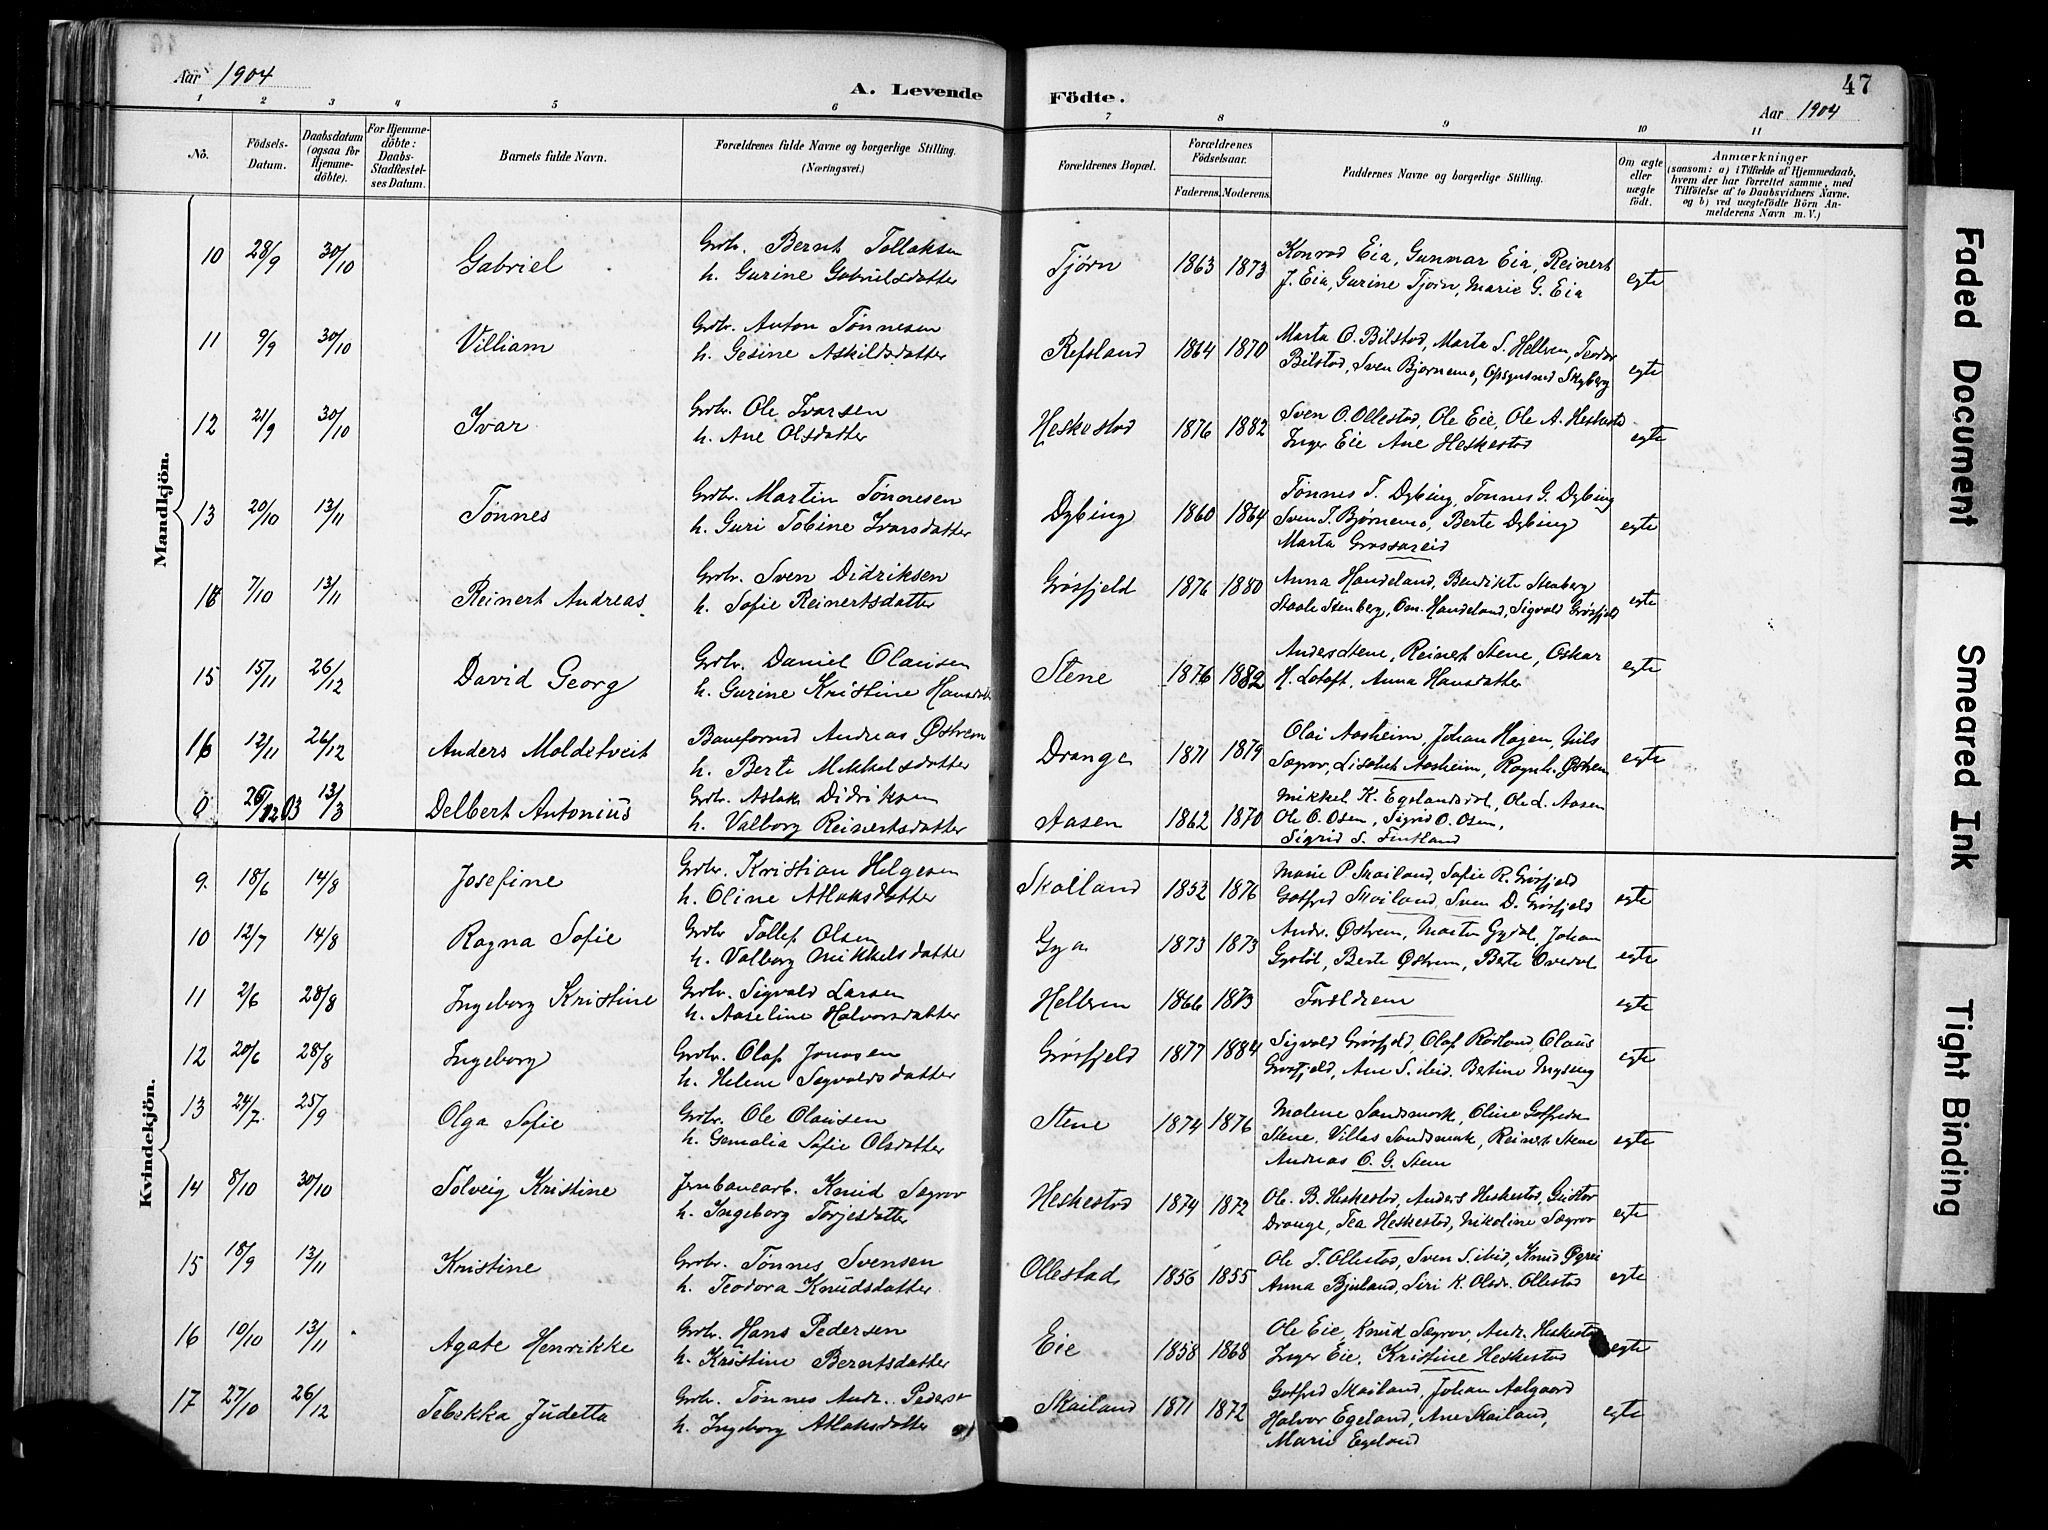 Aar 1904
A. Levende Födte.
47
Aar 1904
1 2 3 4 5 6 7 8 9 10 11
No.
Födsels-Datum.
Daabsdatum (ogsaa for Hjemme-döbte).
For Hjemme-döbte: Daabs-Stadfæstel-ses Datum.
Barnets fulde Navn.
Forældrenes fulde Navne og borgerlige Stilling.
(Næringsvei.)
Forældrenes Bopæl.
Forældrenes Födselsaar.
Faderens. Moderens.
Faddernes Navne og borgerlige Stilling.
Om ægte eller uægte födt.
Anmærkninger
(saasom: a) i Tilfælde af Hjemmedaab, hvem der har forrettet samme, med Tilföielse af to Daabsvidners Navne. og b) ved uægtefödte Börn An-melderens Navn m. V.)
Mandkjön.
10 28/9 30/10 Gabriel Grdbr. Bernt Tollaksen Tjørn 1863 1873 Konrad Eia, Gunnar Eia, Reinert egte
h. Gurine Gabrielsdatter J. Eia, Gurine Tjørn, Marie G. Eia
11 9/9 30/10 Villiam Grdbr. Anton Tønnesen Refsland 1864 1870 Marta O. Bilstad, Marta S. Hellren, Teodor egte
h. Gesine Askildsdatter Bilstad, Sven Bjørnemo, Skyberg
12 21/9 30/10 Ivar Grdbr. Ole Ivarsen Heskestad 1876 1882 Sven O. Ollestad, Ole Eie, Ole A. Heskestad egte
h. Ane Olsdatter Inger Eie Ane Heskestad
13 20/10 13/11 Tønnes Grdbr. Martin Tønnesen Dybing 1860 1864 Tønnes T. Dybing, Tønnes G. Dybing egte
h. Guri Tobine Ivarsdatter Sven T. Bjørnemo, Berte Dybing
Marta Grossareid
14 7/10 13/11 Reinert Andreas. Grdbr. Sven Didriksen Grøsfjeld 1876 1880 Anna Handeland, Bendikte Stenberg egte
h. Sofie Reinertsdatter Staale Stenberg, Om. Handeland, Sigvald Grøsfjeld
15 15/11 26/12 David Georg Grdbr. Daniel Olausen Stene 1876 1882 Anders Stene, Reinert Stene, Oskar egte
h. Gurine Kristine Hansdatter H. Lotoft, Anna Hansdatter
16 12/11 26/12 Anders Moldetveit Baneformd Andreas Østrem Drange 1871 1879 Olai Aasheim, Johan Hagen, Nils egte
h. Berte Mikkelsdatter Sægrov, Lisabet Aasheim, Ragnh. Østrem
0 26/12 03 13/3 Delbert Antonius Grdbr. Aslak Didriksen Aasen 1862 1870 Mikkel K. Egelandsdal, Ole L. Aasen
h. Valborg Reinertsdatter Ole O. Osen, Sigrid O. Osen,
Sigrid S. Fintland
Kvindekjön.
9. 18/6 14/8 Josefine Grdbr. Kristian Helgesen Skailand 1852 1876 Marie P. Skailand, Sofie R. Grøsfjeld egte
h. Oline Atlaksdatter Gotfred Skailand, Sven D. Grøsfjeld
10 12/7 14/8 Ragna Sofie Grdbr Tollef Olsen Gya 1873 1873 Andr. Østrem, Martin Gydal, Johan egte
h. Valborg Mikkelsdatter Gystøl, Berte Østrem, Berte Overdal
11 2/6 28/8 Ingeborg Kristine Grdbr. Sigvald Larsen Hellren 1866 1873 Foreldrene egte
h. Aaseline Halvorsdatter
12 20/6 28/8 Ingeborg Grdbr. Olaf Jonasen Grøsfjeld 1877 1884 Sigvald Grøsfjeld, Olaf Rodland, Olaus egte
h. Helene Segvaldsdatter Grøsfjeld, Ane S. ibid. Bertine Mysing
13 24/7. 25/9 Olga Sofie Grdbr. Ole Olausen Stene 1874 1876 Malene Sandsmark, Oline Gotfredsn egte
h. Gemalia Sofie Olsdatter Stene, Villas Sandsmark, Reinert Stene
Andreas O. G. Stene
14 8/10 30/10 Solveig Kristine Jernbanearb. Knud Sægrov Heskestad 1874 1872 Ole B. Heskestad, Anders Heskestad, Gustav egte
h. Ingeborg Torjesdatter Drange, Tea Heskestad, Nikoline Sægrov
15 18/9 13/11 Kristine Grdbr. Tønnes Svensen Ollestad 1856 1855 Ole T. Ollestad, Sven S. ibid, Knud Øgrei egte
h. Teodora Knudsdatter Anna Bjuland, Siri K. Olsdr. Ollestad
16 10/10 13/11 Agate Henrikke Grdbr. Hans Pedersen Eie 1858 1868 Ole Eie, Knud Sægrov, Andr. Heskestad egte
h. Kristine Berntsdatter Inger Eie, Kristine Heskestad
17 27/10 26/12 Tebekka Judetta Grdbr. Tønnes Andr. Peders Skailand 1871 1872 Gotfred Skailand, Johan Aalgaard egte
h. Ingeborg Atlaksdatter Halvor Egeland, Ane Skailand,
Marie Egeland
Faded Document
Smeared Ink
Tight Binding